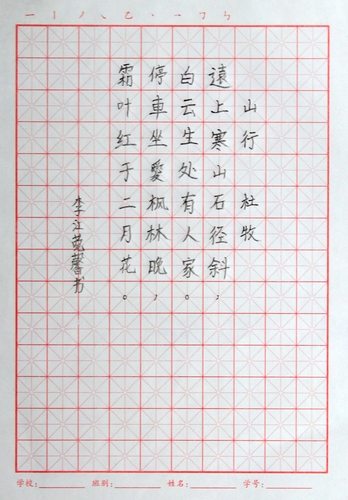 山行 杜牧
遠上寒山石径斜，
白云生处有人家。
停車坐愛枫林晚，
霜叶红于二月花。
李江苑馨书
学校： 班别： 姓名： 学号：